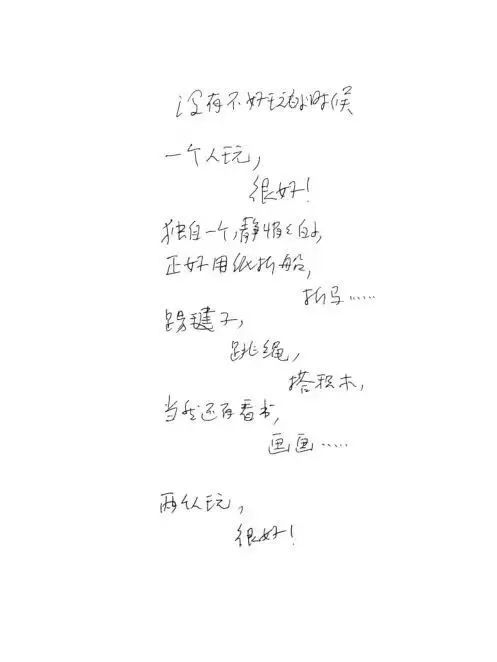 没有不好玩的时候
一个人玩，
很好！
独自一个，静悄悄的，
正好用纸折船，
折马……
踢毽子，
跳绳，
搭积木，
当然还有看书，
画画……
两个人玩，
很好！